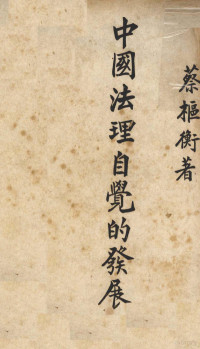 蔡樞衡著
中國法理自覺的發展